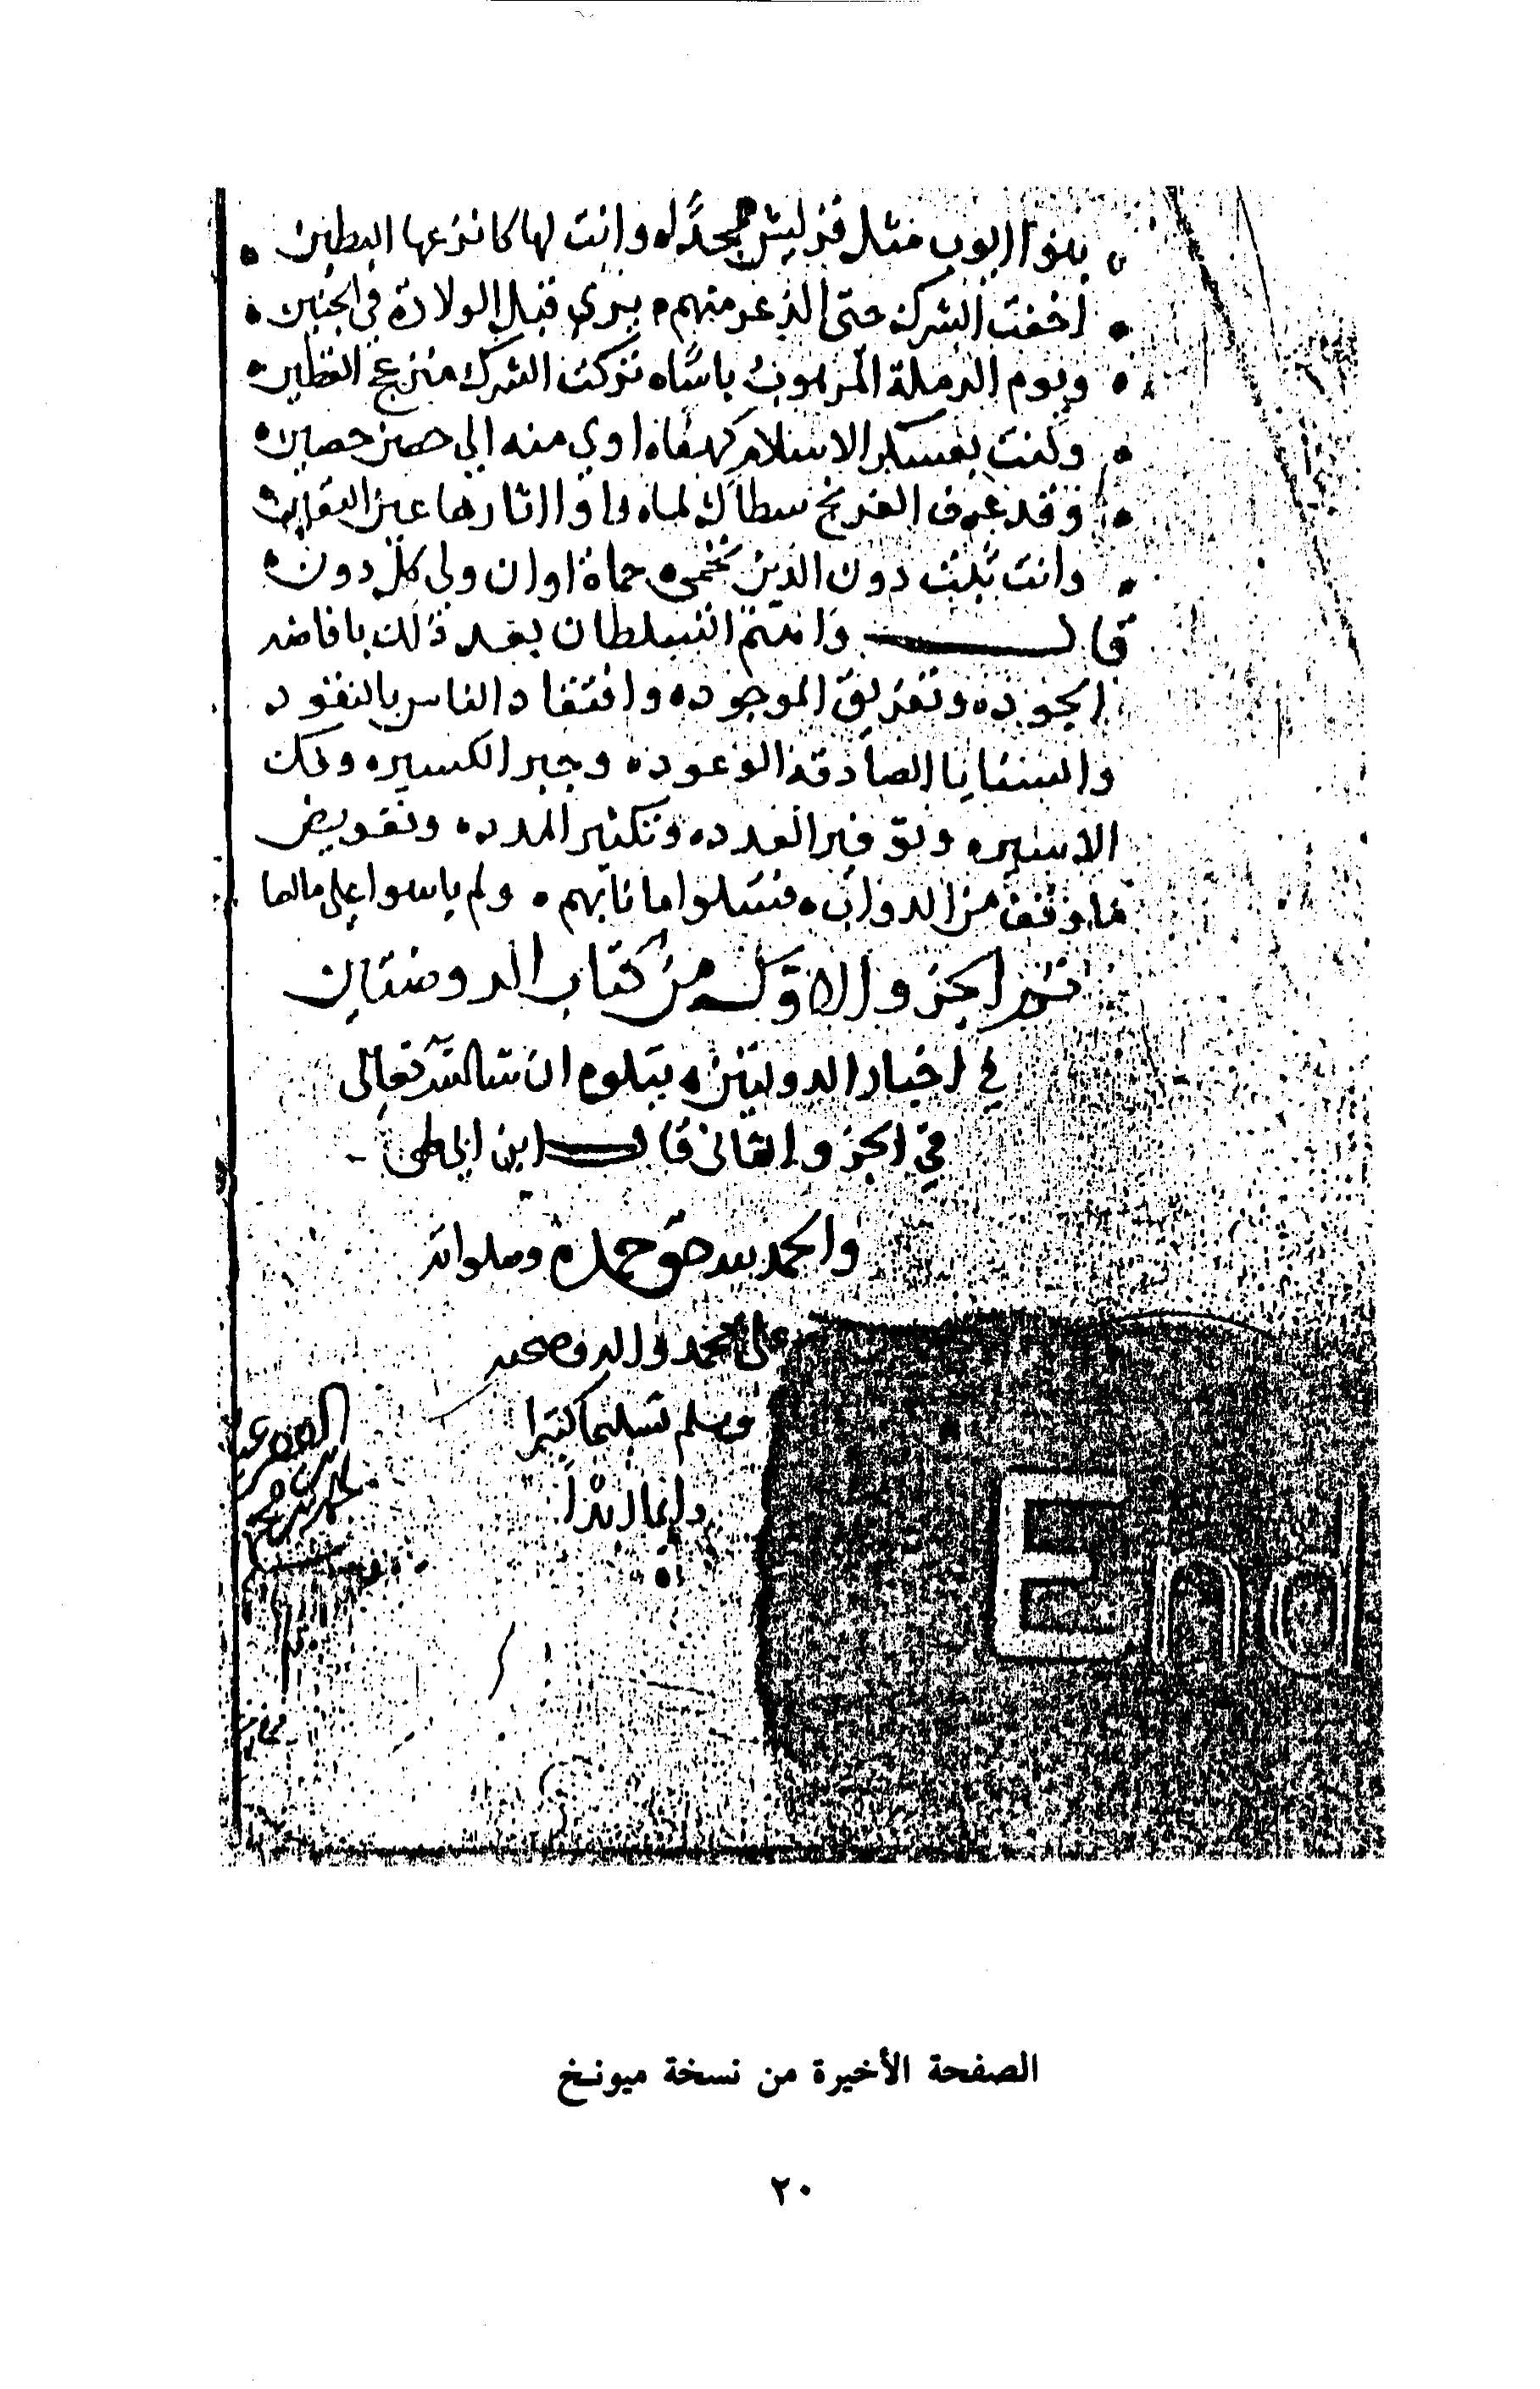 بنو ايوب مثل قريش مجدا ه وانت لها كانزعها البطين ه
اخفت الشرك حتى الذعر منهم ه يرى قبل الولادة في الجنين ه
ويوم الرملة المرهوب باسا ه تركت الشرك منزعج القطين ه
وكنت لعسكر الاسلام كهفا ه اوى منه الى حصن حصين ه
وقد عرف الفرنج سطاك لما ه راوا اثارها عين اليقين ه
وانت ثبت دون الدين تحمى ه حماه اوان ولى كل دون ه
قال واهتم السلطان بعد ذلك بافاضة
الجود ه وتفريق الموجود ه وافتقاد الناس بالنقود
والنسايا الصادقة الوعود ه وجبر الكسير ه وفك
الاسير ه وتوفير العدد ه وتكثير المدد ه وتعويض
ما وقف من الدواب ه فسلوا ما نابهم ه ولم ياسوا على ما
تم الجزو الاول من كتاب الروضتين
في اخبار الدولتين ه يتلوه ان شا الله تعالى
في الجزو الثاني قال ابن ابي طي
والحمد لله حق حمده وصلواته
على محمد واله وصحبه
وسلم تسليما كثيرا
دايما ابدا
End
الصفحة الأخيرة من نسخة ميونخ
٢٠